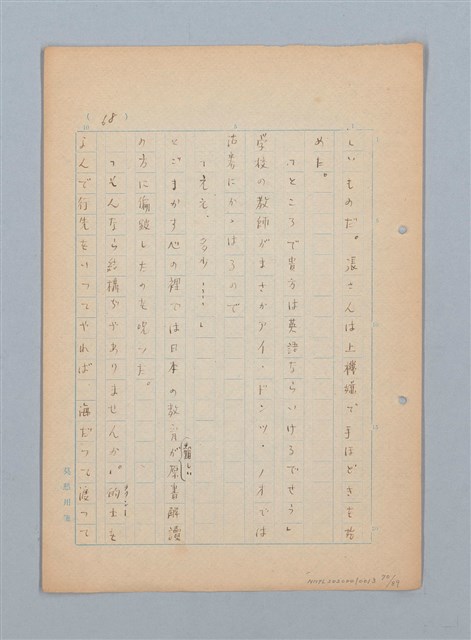 (68)
しいものだ。張さんは上機嫌で手ほどきを始
めた。
「ところで貴方は英語ならいけるでせう」
学校の教師がまさかアイ・ドンツ・ノオでは
沽券にかゝはるので
「ええ、多少……」
とごまかす心の裡では日本の教育が原書解讀
の方に偏
したのを
つた。
「そんなら結構ぢやありませんか。的士を
タクシー
よんで行先をいつてやれば、海だつて渡つて
原稿用箋